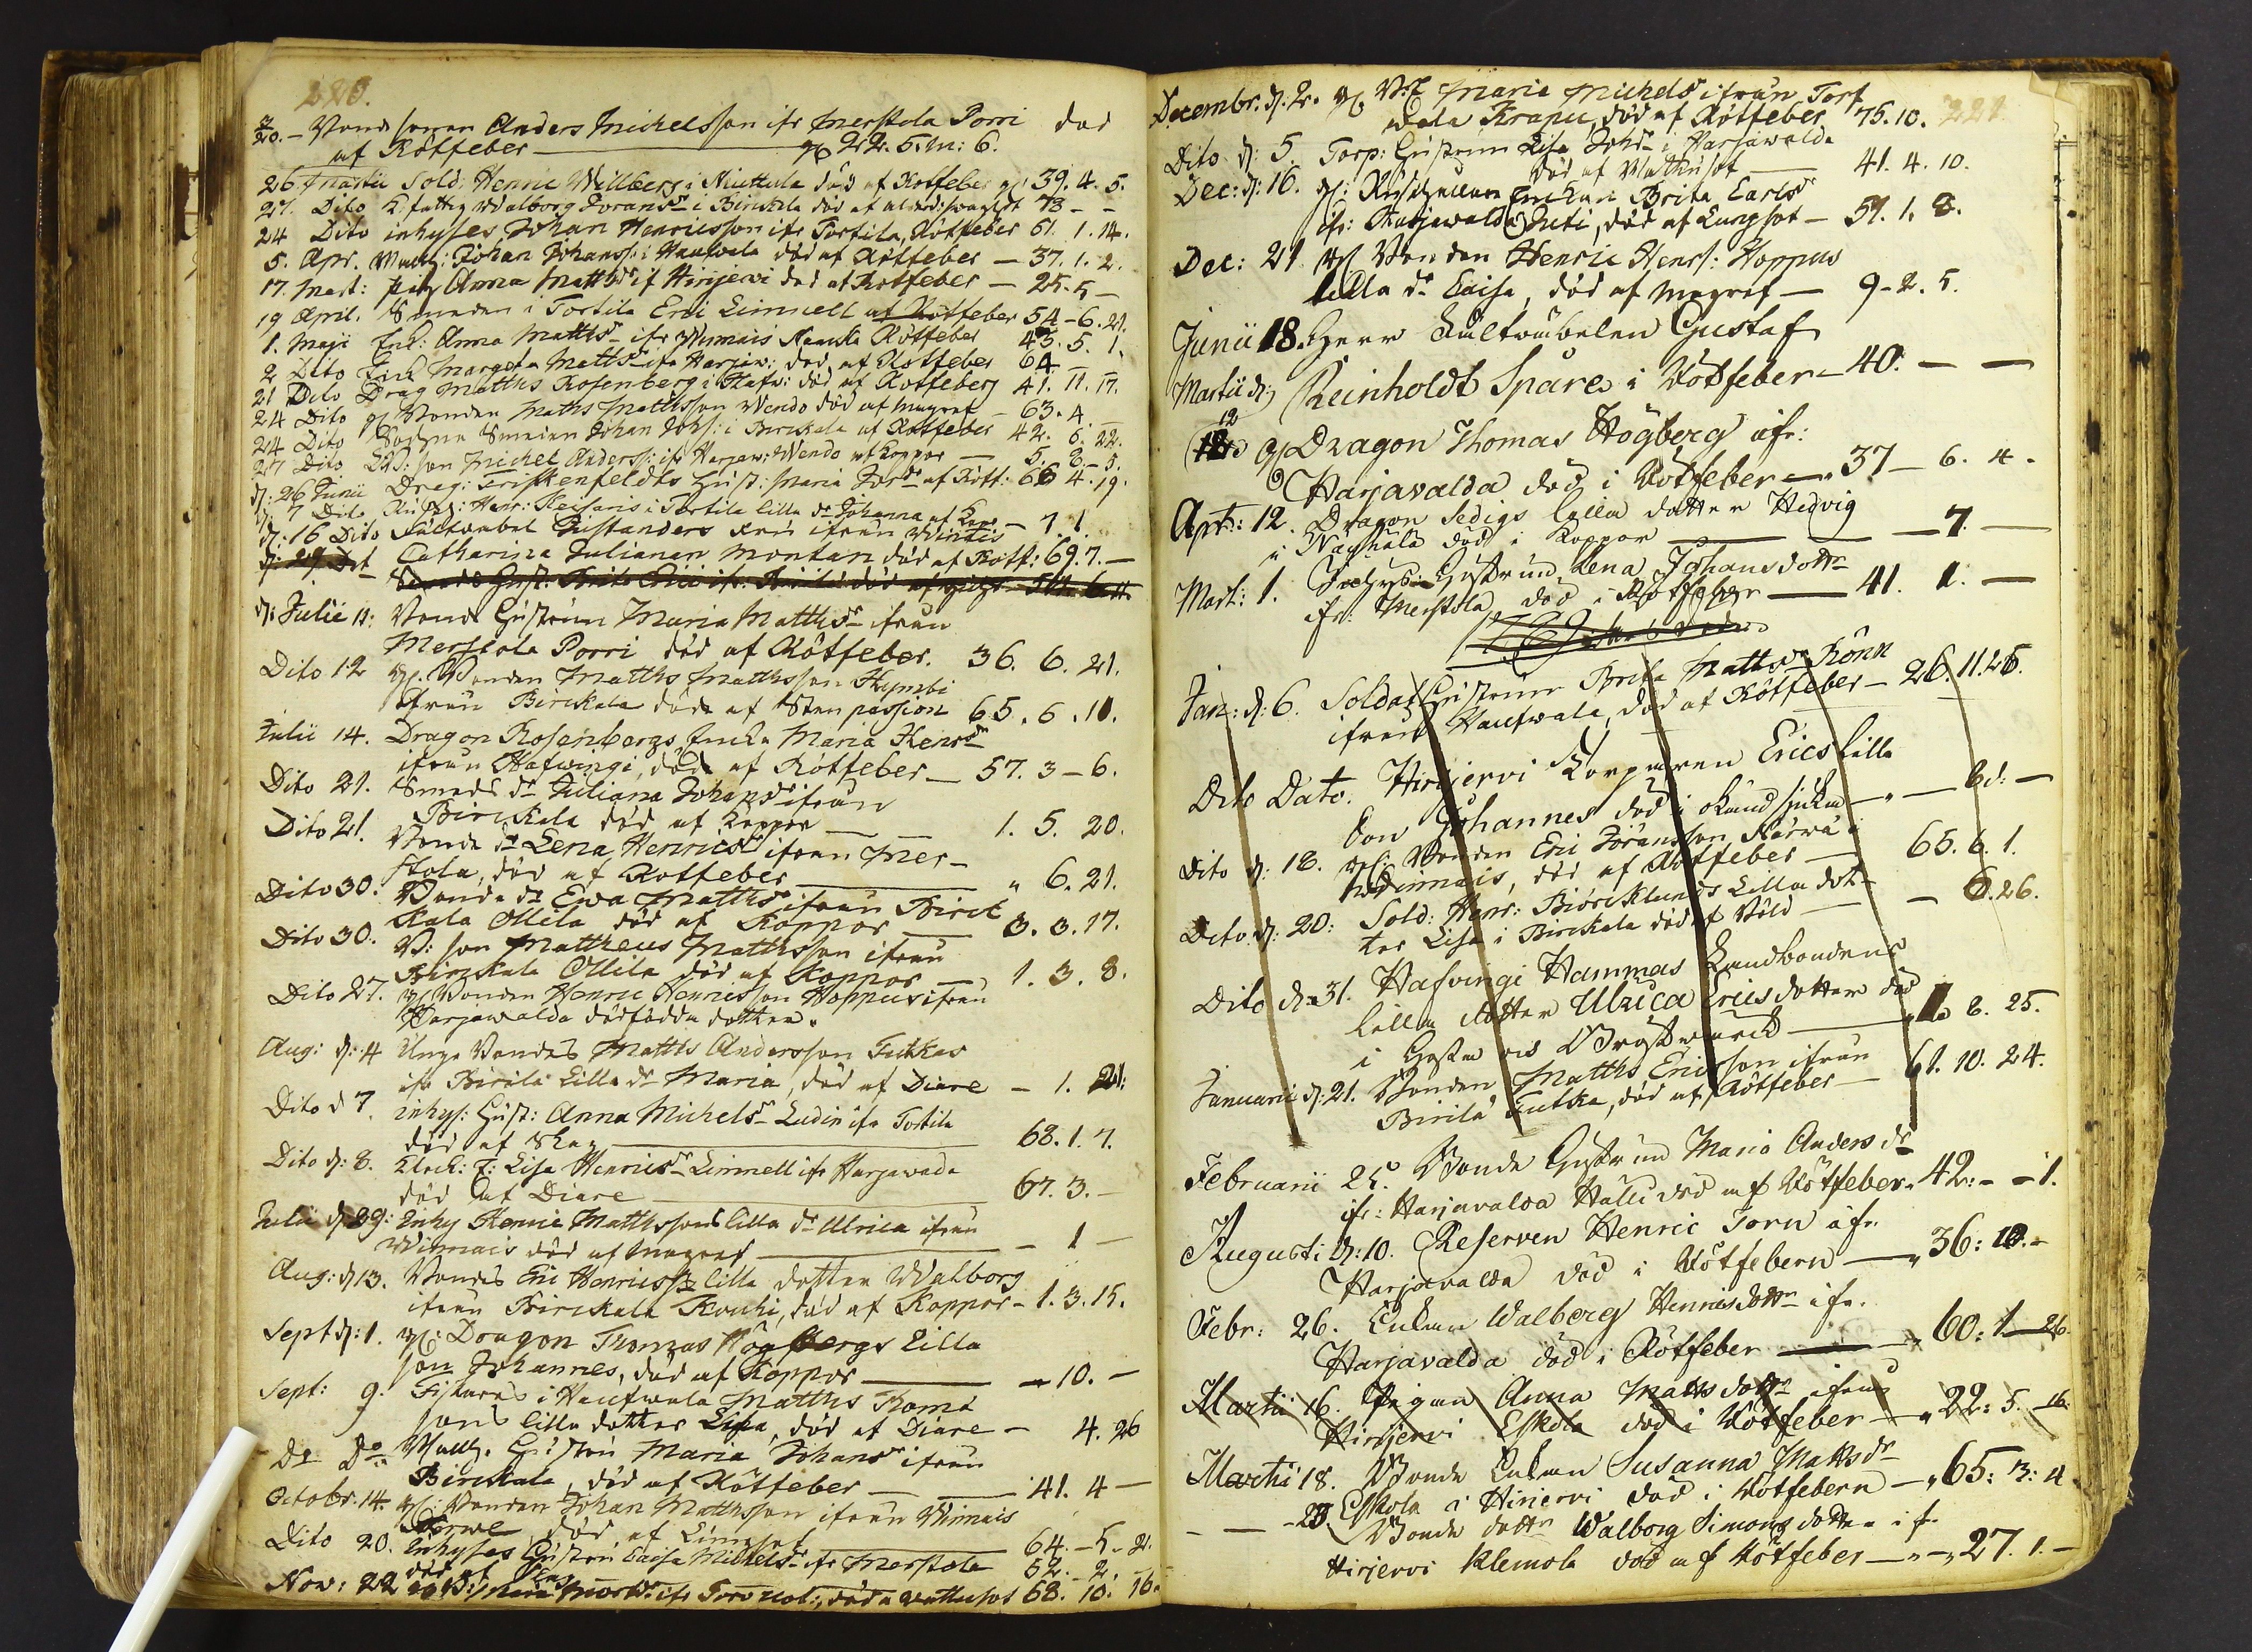 220.
20. - Bond sonen Anders Michelsson ifr Merstola Porri död
af Rötfeber 22. 5. m: 6.
26. Martii Sold: Henric Willberg i Niuttula död af Rötfeber 39. 4. 5.
27. Dito K: fattig Walborg Joransdr i Birckala död af ålderdomssvaghet 73 - -
24 Dito inhyses Johan Henricsson ifr Torttila, Rötfeber 61. 1. 14.
5. Apr. Johan Johanss: i Haufwala död af Rötfeber - 37. 1. 2.
17. Mart: pig Anna Matthsdr if Hirijervi död af Rötfeber - 25. 5 -
19 April. Smeden i Torttila Eric Limnell af Rötfeber 54 - 6. 21.
1. Maji Enk: Anna Matthsdr ifr Winnais Rötfeber 43. 5. 1.
2 Dito Enk Margeta Matthsdr ifr Harjaw: död af Rötfeber 64 -
21 Dito Drag Matths Rosenberg i Hafw: död af Rötfeber 41. 11. 17.
24 Dito Bonden Matths Matthsson Wendo död af magref - 63. 4
24 Dito Smeden Johan Johs: i Birckala af Rötfeber 42. 6. 22.
27 Dito son Michel Anderss: ifr Harjaw: Wendo af Koppor - 5. 8. 5.
d: 26 Junii Drag: Friskenfeldts Hust: Maria Jördr af Röttf: 66 4. 19.
d: 7 Dito Henr: Keisaris i Torttila lilla dr Johanna af - 7. 1.
d: 16 Dito Fältwäbel Gustanders Fru ifrån Wintis
Catharina Juliana Montan död af Röttf: 69. 7. -
d: Julii 11: Bond Hustrun Maria Matthsdr ifrån
Merstola Porri död af Rötfeber. 36. 6. 21.
Dito 12 Bonden Matths Matthsson Kymbi
ifrån Birckala död af Sten passion 65. 6. 10.
Julii 14. Dragon Rosenbergs Enka Maria Henrsdr
ifrån Hafwingi, död af Rötfeber - 57. 3 - 6.
Dito 21. Smeds dr Juliana Johansdr ifrån
Birckala död af Koppor - 1. 5. 20.
Dito 21. Bonde dr Lena Henricsdr ifrån Mer-
stola, död af Rotfeber " 6. 21.
Dito 30. Bonde dr Ewa Matthsdr ifrån Birck
kala Ollila död af Koppor 3. 3. 17.
Dito 30. B: son Mattheus Matthsson ifrån
Birckala Ollila död af Koppor - 1. 3. 8.
Dito 27. Bonden Henric Henricsson Hoppus ifrån
Harjawalda dödfödda dotter.
Aug: d: 4 Unge Bondes Matths Andersson Futkas
ifr Birila Lilla dr Maria, död af Diare - 1. 21.
Dito d 7. inhys: Hust: Anna Michelsdr Ludin ifr Torttila
död af 68. 1. 7.
Dito d: 8. Klock: E: Lisa Henricsdr Limnell ifr Harjawada
död af Diare 67. 3. -
Julii d: 29: Inhy Henric Matthssons lilla dr Ulrica ifrån
Winnais död af magref - 1 -
Aug: d 13. Bondes Eric Henricss: lilla dotter Walborg
ifrån Birckala Kouhi, död af Koppor - 1. 3. 15.
Sept d: 1. Dragon Thomas Högbergs lilla
son Johannes, död af Koppor - 10. -
Sept: 9. Fiskares i Haufwala Matths
sons lilla dotter Lisa, död af Diare - 4. 26
Do Do Hustru Maria Johansdr ifrån
Birckala, död af Rötfeber - 41. 4 -
Octobr. 14. Bonden Johan Matthsson ifrån Winnais
död af Lungsot 64. - 5. 2.
Dito 20. Inhyses Hustru Caisa Michelsdr ifr Merstola
död af 52. - 2. -
Nov: 22 ifr död af Wattusot 68. 10. 16.
Decembr. d. 2. Maria Michelsdr ifrån Torf
wola Krapu, död af Rötfeber 75. 10. 221
Dito d: 5. Torp: Hustrun Lisa Johsdr i Harjawalda
död af Wattusot 41. 4. 10.
Dec: d: 16. Enkan Brita Carlsdr
ifr: Harjawalda Juti, död af Lungsot - 51. 1. 8.
Dec: 21 Bonden Henric Henrs: Hoppus
lilla dr Caisa, död af magref - 9 - 2. 5.
Junii 18. Herr Fältväbelen Gustaf
Martii d: Reinholdt Spåre i Rötfeber - 40. - -
12
Dragon Thomas Högberg ifr:
Harjavalda död i Rötfeber - 37 - 6. 4.
Apr: 12. Dragon Sedigs lilla dotter Hedvig
i död i Koppor - 7. -
Mart: 1. Inhys Hustrun Lena Johans dottr
ifr: Merstola död i Rötfeber 41. 1. -
Jan: d: 6. Soldat Hustrun Brita Matthsdr Rönn
ifrån Haufwala, död af Rötfeber - 26. 11. 26.
Dito Dato. Hirijervi Korpraren Erics lilla
Son Johannes död i okänd sjukd - 6d: -
Dito d: 18. Bonden Eric Joransson Närwä i
Winnais, död af Rötfeber - 65. 6. 1.
Dito d: 20: Sold: Henr: Biörcklunds Lilla dot-
ter Lisa i Birckala död af Röld - 6. 26.
Dito d: 31. Hafvingi Hammas Landbondens
lilla dotter Ulrica Ericsdotter död
i Hosta och Bröstwärck 6. 25.
Januarii d: 21. Bonden Matths Ericsson ifrån
Birilä Futka, död af Rötfeber - 61. 10. 24.
Februarii 25. Bonde Hustrun Maria Anders dr
ifr: Harjavalda Hälli död af Rötfeber. 42: - - 1.
Augusti d: 10. Reserven Henric Torn ifr.
Harjavalda död i Rötfebern - 36: 10. -
Febr: 26. Enkan Walborg Henricsdottr ifr.
Harjavalda död i Rötfeber - 60: 1. 26.
Martii 16. Pigan Anna Matts dottr ifrån
Hirijervi Eskola död i Rötfeber - 22: 5. 16.
Martii 18. Bonde Enkan Susanna Mattsdr
Eskola i Hirjervi död i Rötfebern - 65: 3: 4
- - - 23 Bonde dottr Walborg Simons dotter ifr
Hirjervi Klemola död af Rötfeber - 27. 1. -